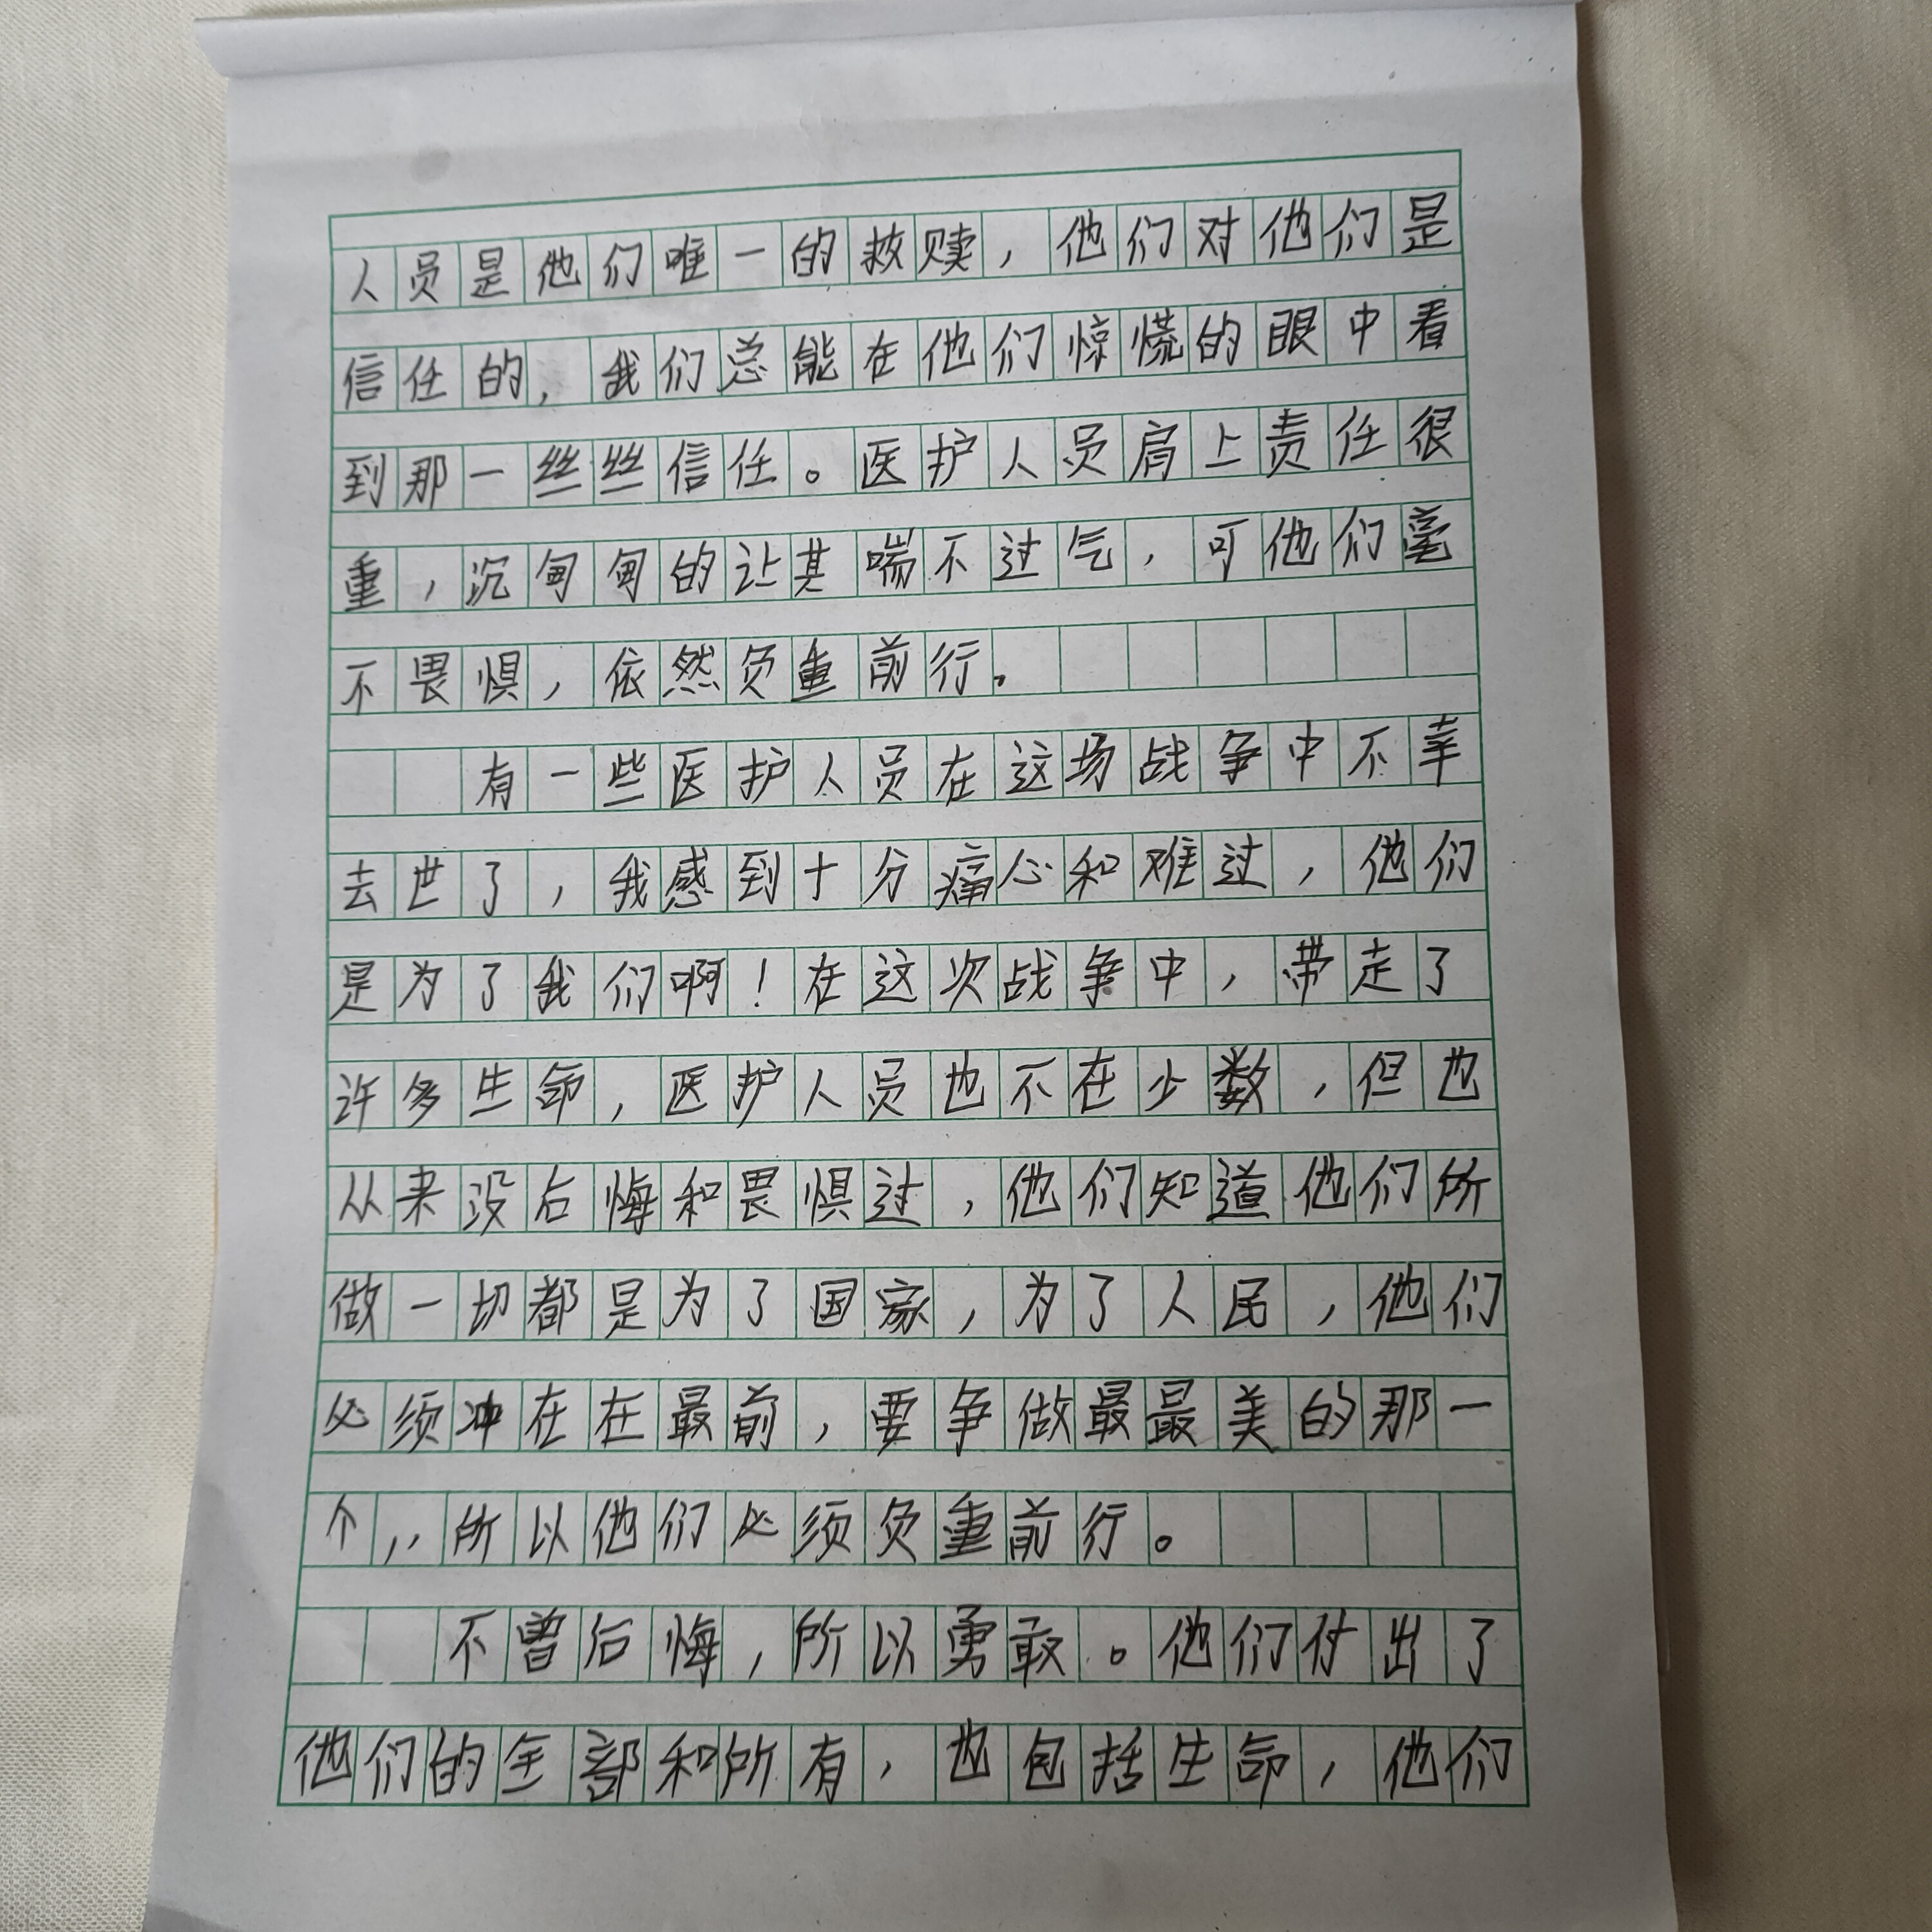 人员是他们唯一的救赎，他们对他们是
信任的，我们总能在他们惊慌的眼中看
到那一丝丝信任。医护人员肩上责任很
重，沉甸甸的让其喘不过气，可他们毫
不畏惧，依然负重前行。
有一些医护人员在这场战争中不幸
去世了，我感到十分痛心和难过，他们
是为了我们啊！在这次战争中，带走了
许多生命，医护人员也不在少数，但也
从来没后悔和畏惧过，他们知道他们所
做一切都是为了国家，为了人民，他们
必须冲在在最前，要争做最最美的那一
个，，所以他们必须负重前行。
不曾后悔，所以勇敢。他们付出了
他们的全部和所有，也包括生命，他们